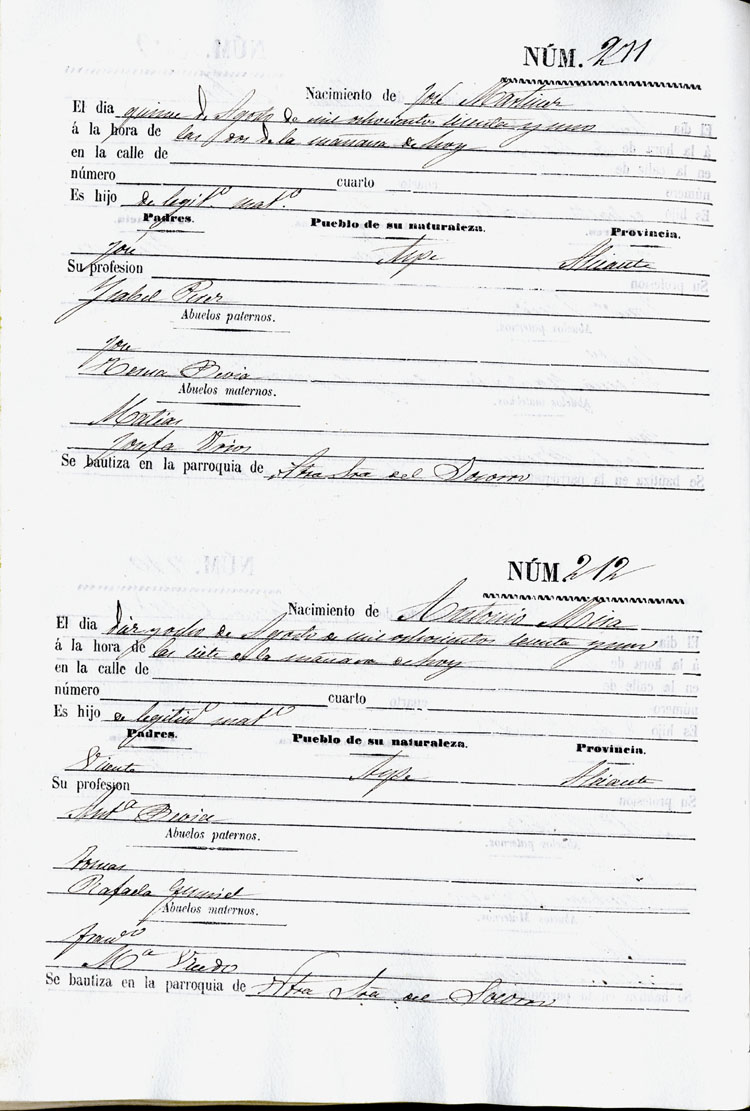 NÚM. 211
Nacimiento de José Martinez
El dia quince de Agosto de mil ochocientos sesenta y uno
á la hora de las dos de la mañana de hoy
en la calle de
número cuarto
Es hijo de legit.º mat.º
Padres. Pueblo de su naturaleza. Provincia.
José Aspe Alicante
Su profesion
Ysabel Perez
Abuelos paternos.
José
Teresa
Abuelos maternos.
Matias
Josefa
Se bautiza en la parroquia de Ntra Sra del Socorro
NÚM 212
Nacimiento de Antonio Mira
El dia diez y ocho de Agosto de mil ochocientos sesenta y uno
á la hora de las siete de la mañana de hoy
en la calle de
número cuarto
Es hijo de mat.º
Padres. Pueblo de su naturaleza. Provincia.
Vicente Aspe Alicante
Su profesion
Ant.ª
Abuelos paternos.
Tomas
Rafaela
Abuelos maternos.
Fran.co
M.ª
Se bautiza en la parroquia de Ntra Sra del Socorro